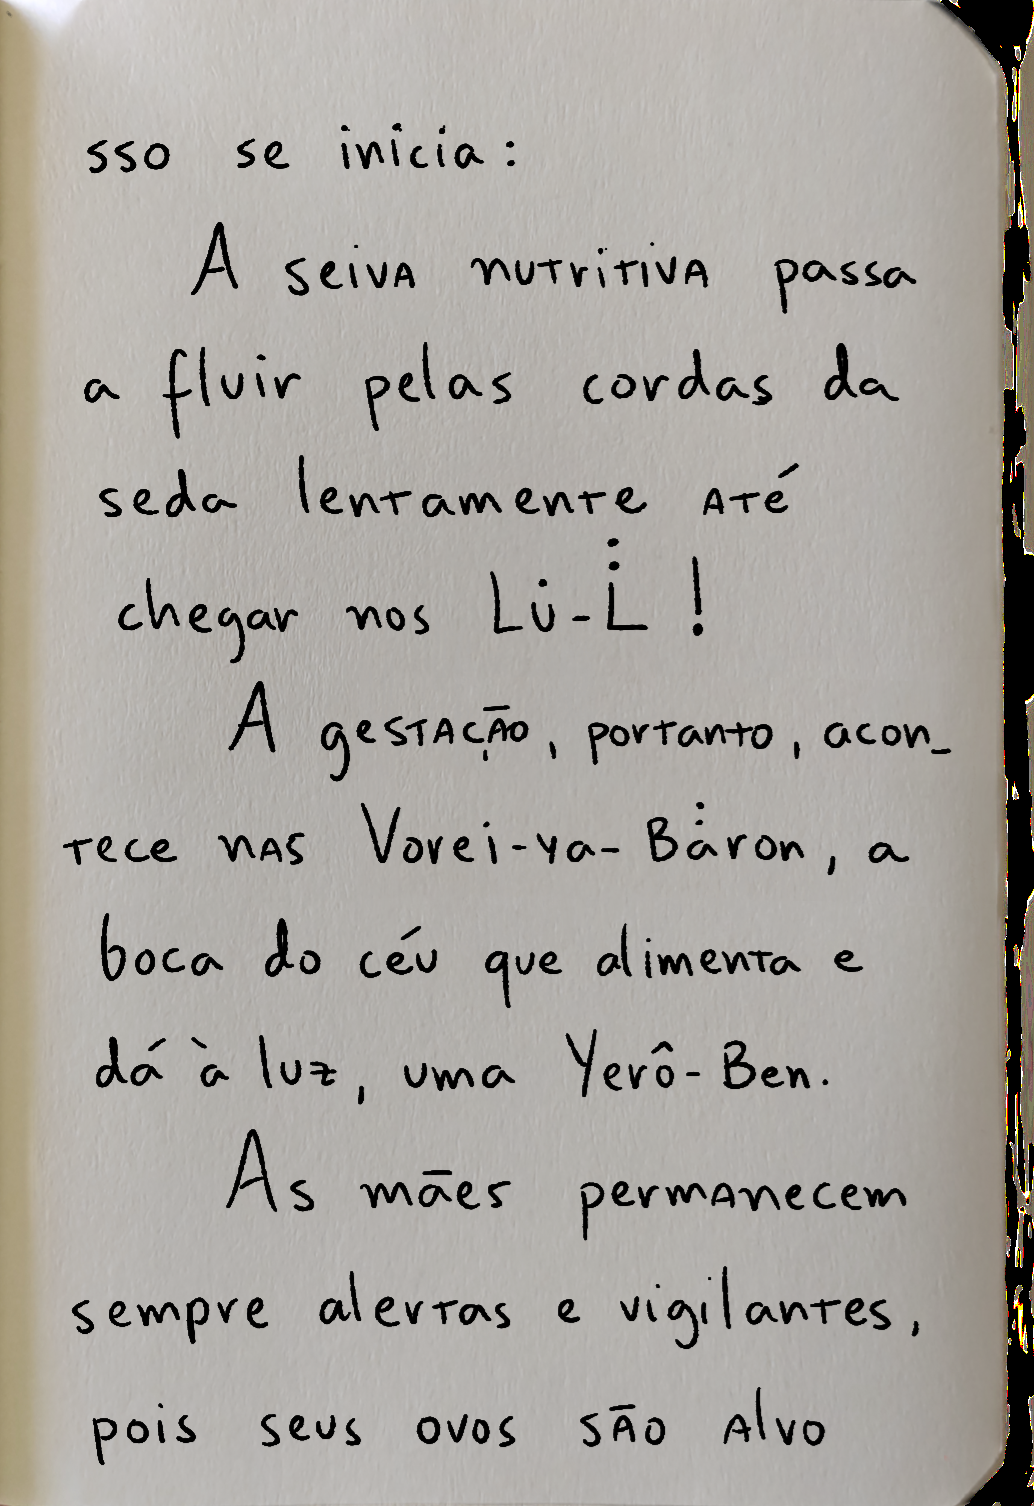 sso se inicia:
A seiva nutritiva passa
a fluir pelas cordas da
seda lentamente até
chegar nos Lu̇-L̈!
A gestação, portanto, acon_
tece nas Vorei-ya-Bȧron, a
boca do céu que alimenta e
dá à luz, uma Yerô-Ben.
As mães permanecem
sempre alertas e vigilantes,
pois seus ovos são alvo